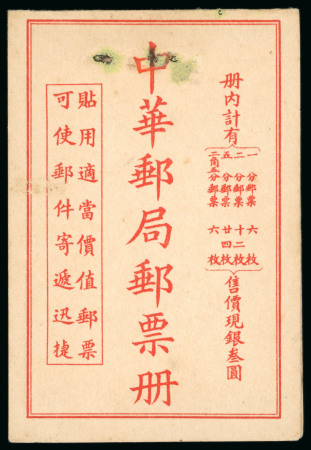 册內計有
一分郵票 六枚
二分郵票 十二枚
五分郵票 廿四枚
二角五分郵票 六枚
售價現銀叁圓
中華郵局郵票册
貼用適當價值郵票
可使郵件寄遞迅捷